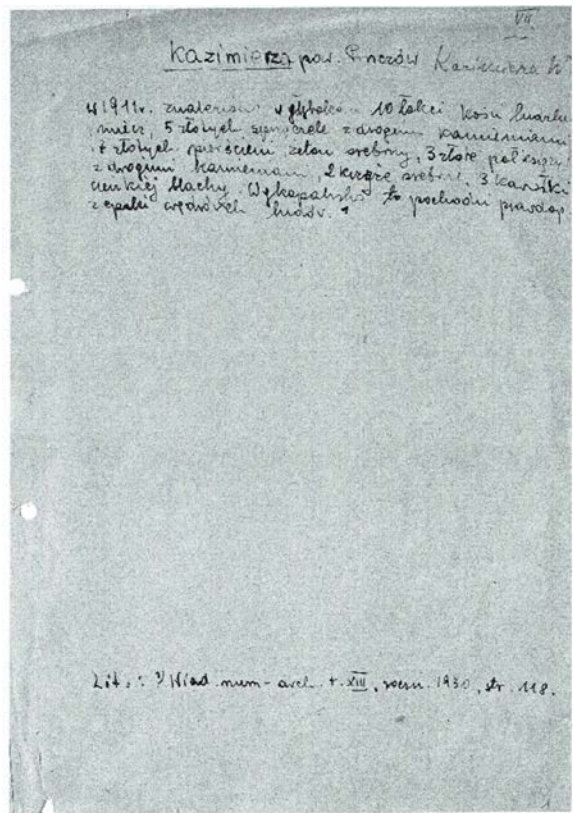 VII
Kazimierza pow. Pinczów Kazimierza W
w 1911r. znaleziono w głębokości 10 łokci kości ludzkie
miecz, 5 złotych sprzączek z drogimi kamieniami
7 złotych pierścieni żeton srebrny, 3 złote półksiężyce
z drogimi kamieniami, 2 kręgle srebrne, 3 kawałki
cienkiej blachy. Wykopalisko to pochodzi prawdop.
z epoki wędrówek ludów. 1
Lit.: 1) Wiad. num-arch. t. XIII, roczn. 1930, str. 118.
1